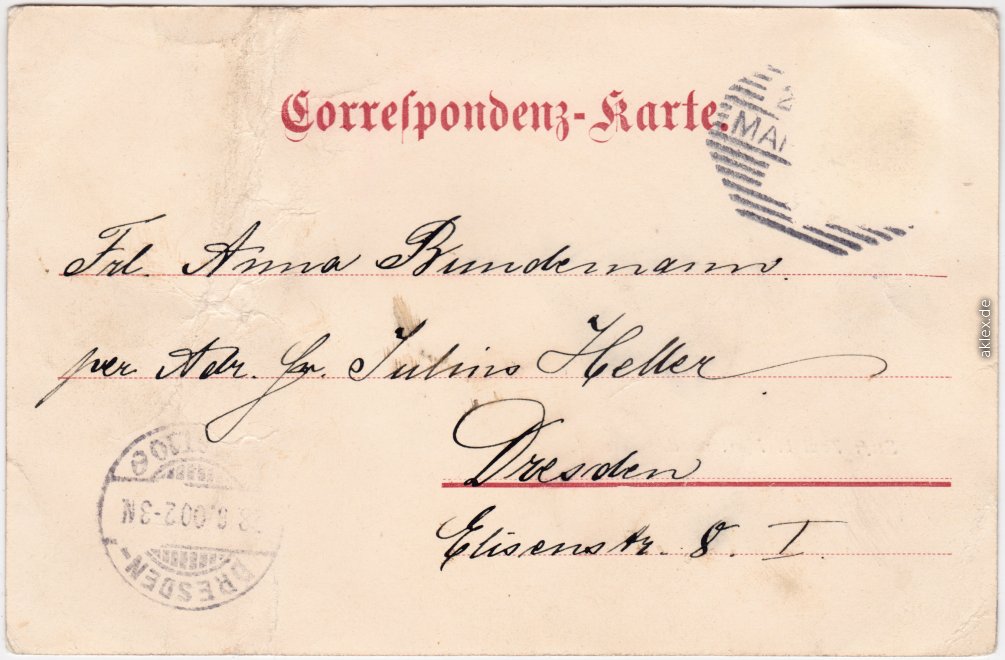 Correspondenz-Karte.
2
MAR
Frl. Anna Bundemann.
per Adr. Hr. Julius Heller
Dresden
Elisenstr. 8. I.
DRESDEN-
6.00.2-3N
aklex.de